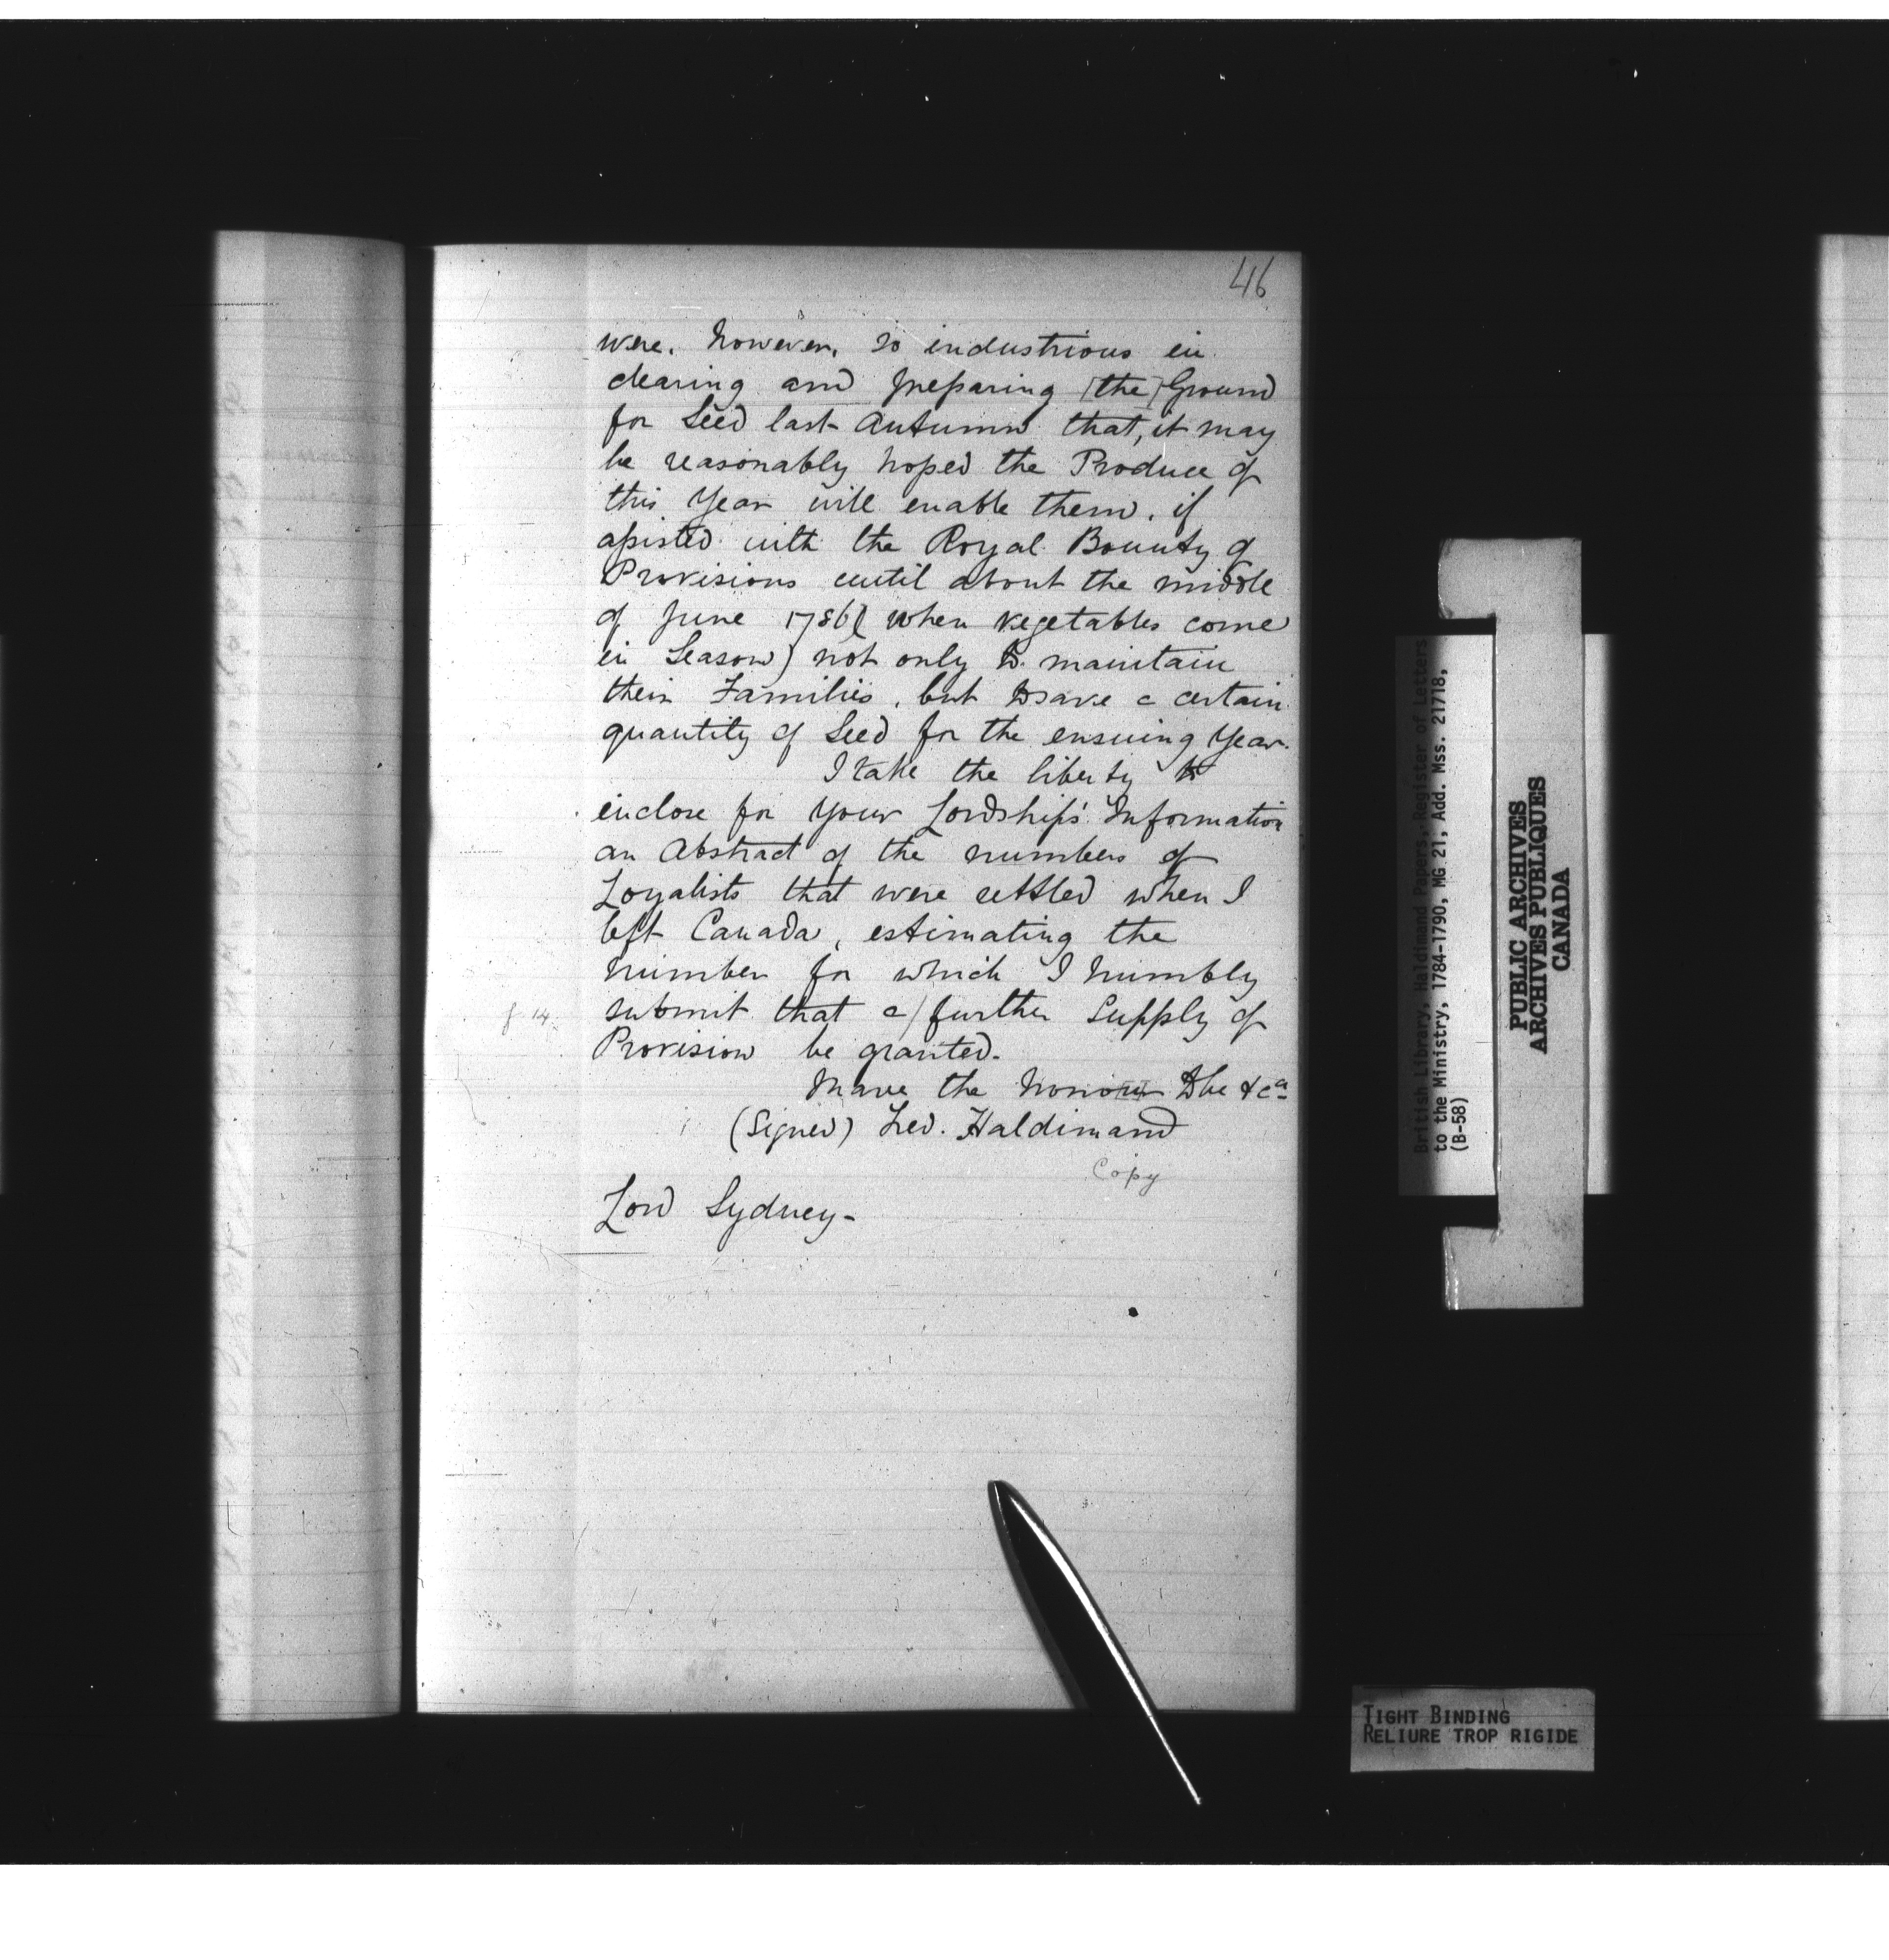 46
were, however, so industrious in
clearing and preparing [the] Ground
for Seed last Autumn that, it may
be reasonably hoped the Produce of
this Year will enable them, if
assisted with the Royal Bounty of
Provisions until about the middle
of June 1786 (when vegetables come
in Season) not only to maintain
their Families, but to save a certain
quantity of Seed for the ensuing Year.
I take the liberty to
inclose for Your Lordship's Information
an Abstract of the numbers of
Loyalists that were settled when I
left Canada, estimating the
number for which I humbly
f 14. submit that a/further Supply of
Provision be granted.
have the honour to be &ca
(Signed) Fred. Haldimand
Copy
Lord Sydney-
British Library, Haldimand Papers, Register of Letters
to the Ministry, 1784-1790, MG 21, Add. Mss. 21718,
(B-58)
PUBLIC ARCHIVES
ARCHIVES PUBLIQUES
CANADA
TIGHT BINDING
RELIURE TROP RIGIDE